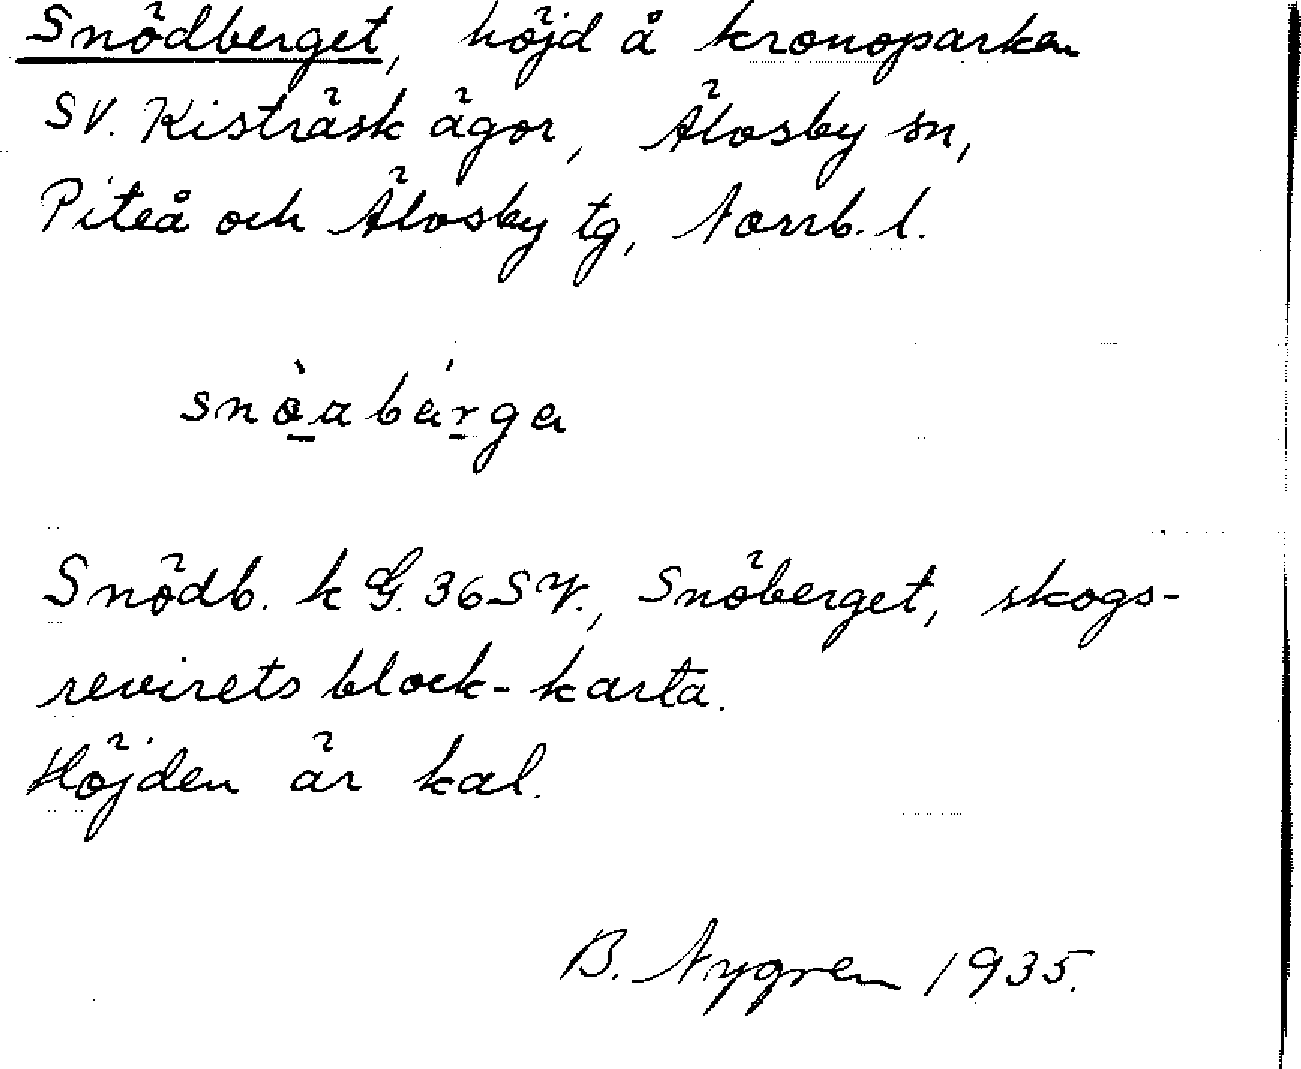 Snödberget, höjd å kronoparken
SV. Kisträsk ägor, Älvsby sn,
Piteå och Älvsby tg, Norrb. l.
snö̀abárga
Snödb. k G. 36 SV., Snöberget, skogs-
revirets block-karta.
Höjden är kal.
B. Nygren 1935.